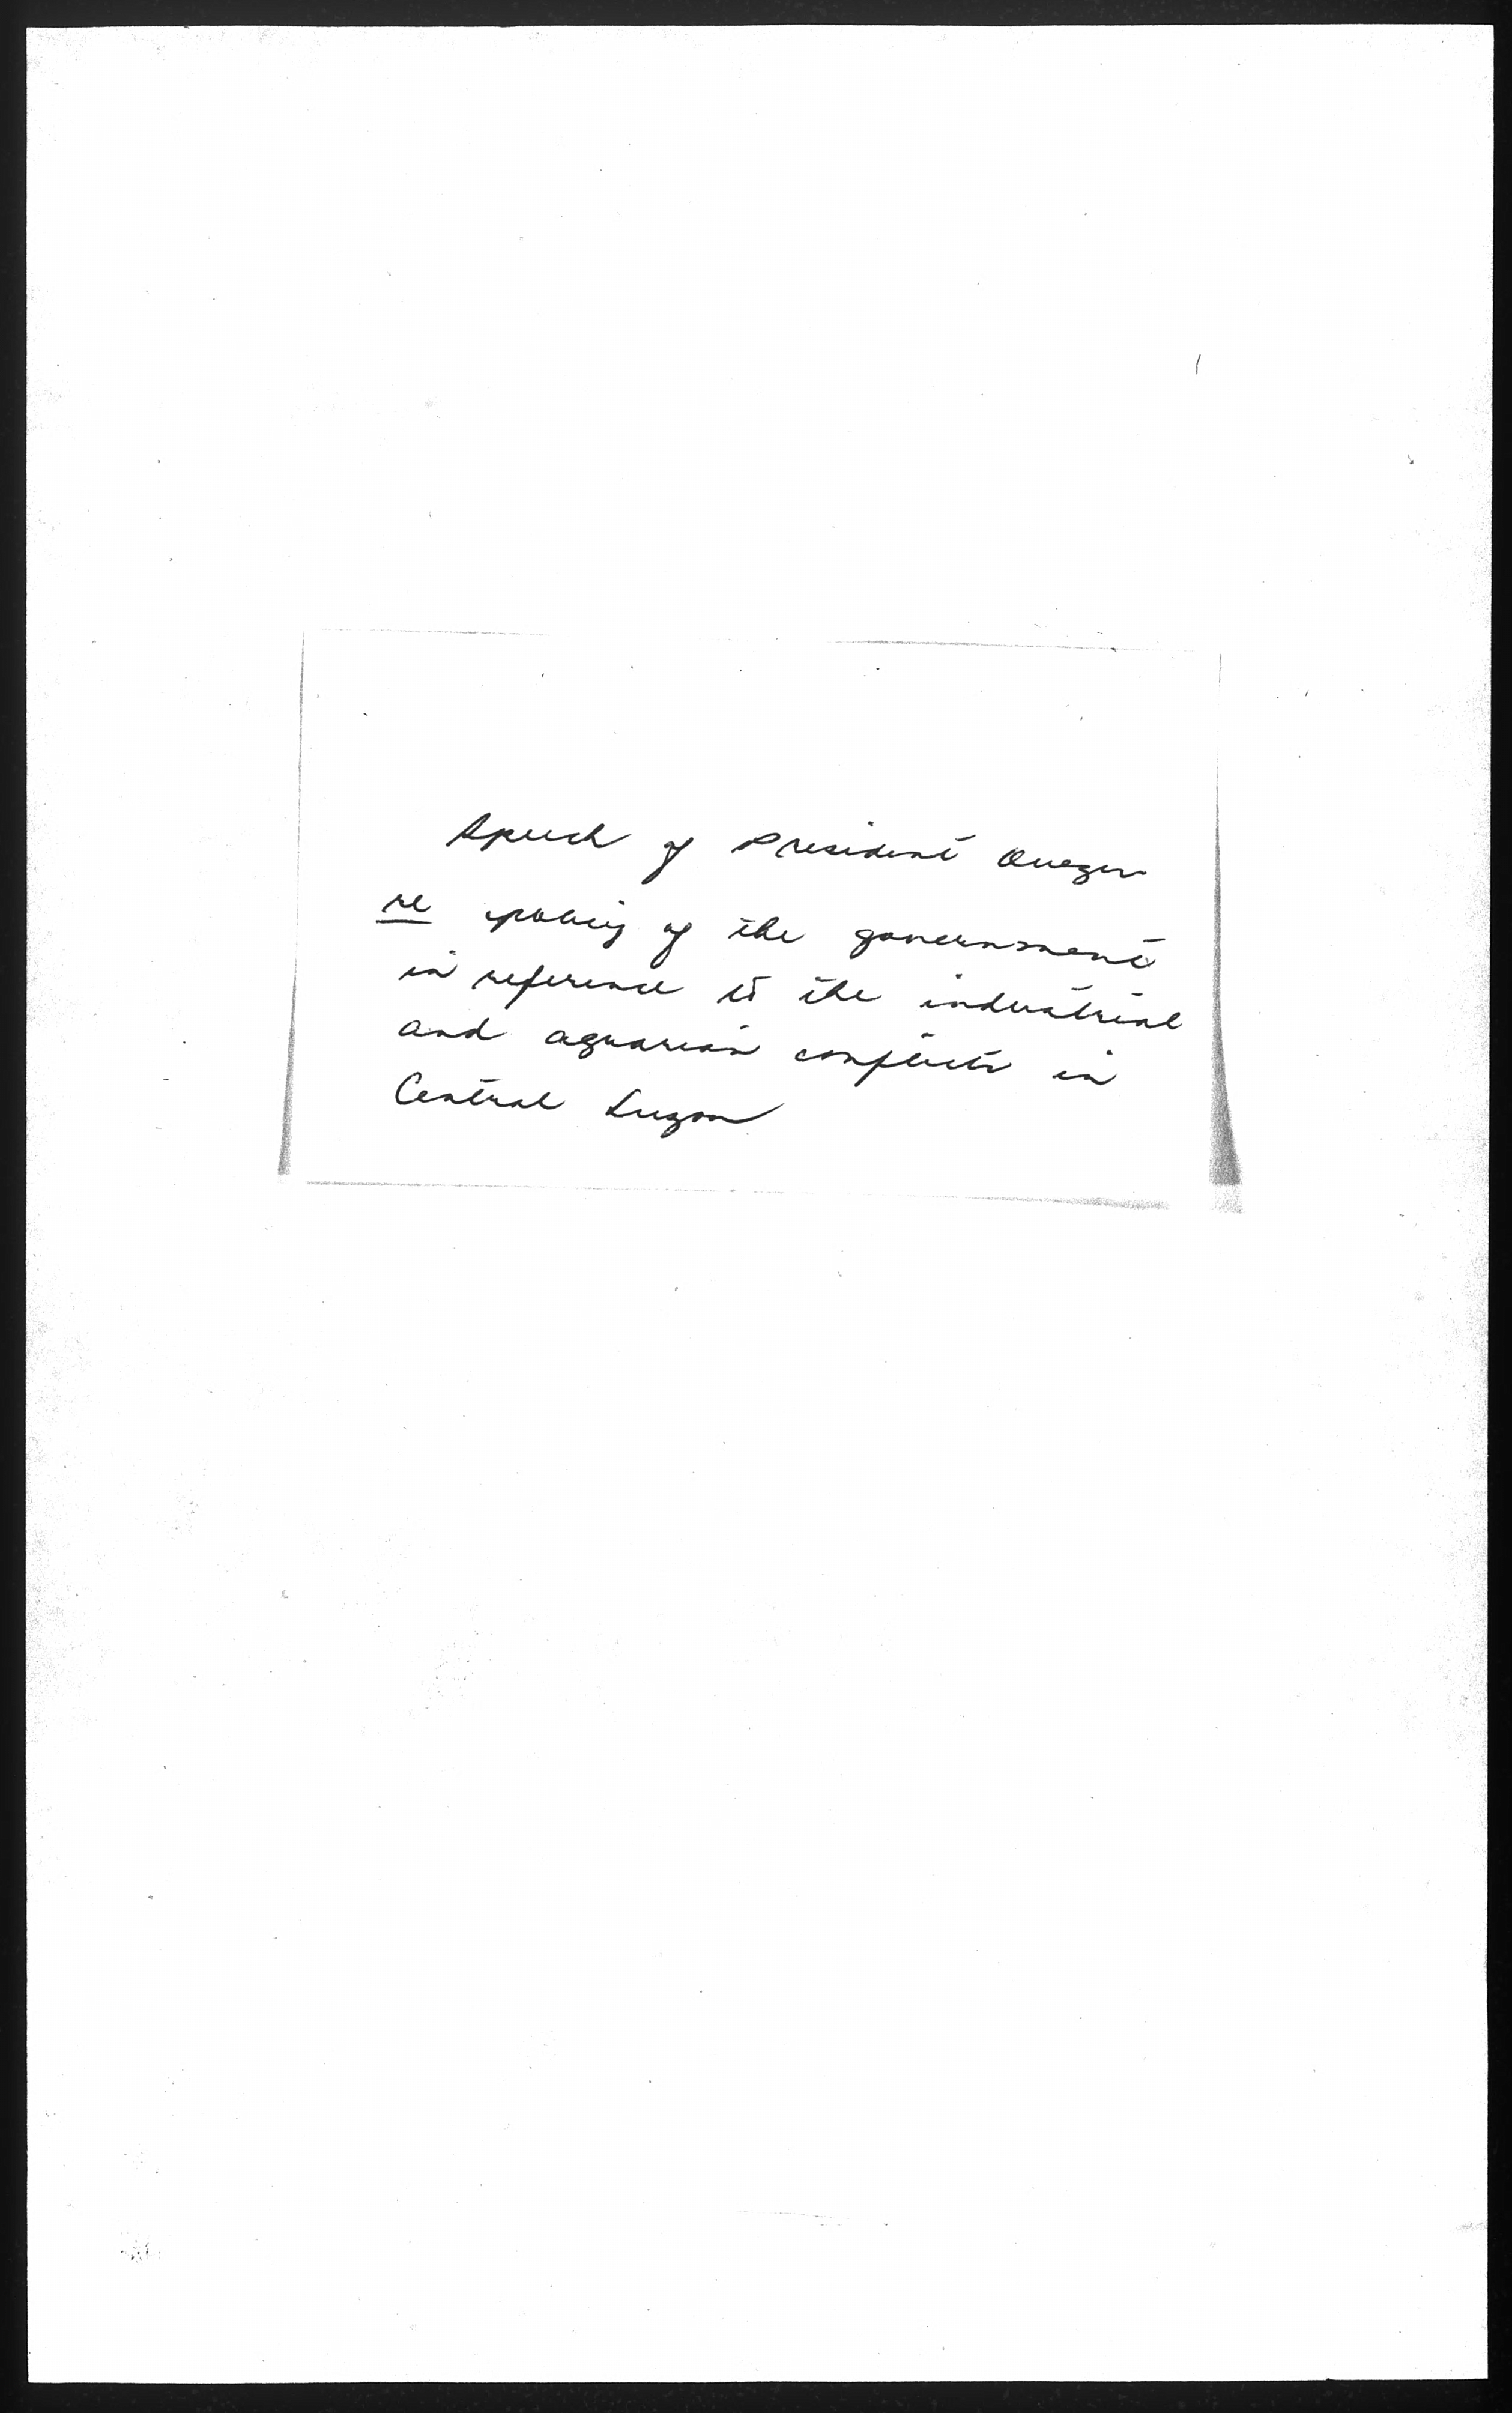 Speech of President Quezon
re policy of the government
in reference to the industrial
and agrarian conflicts in
Central Luzon